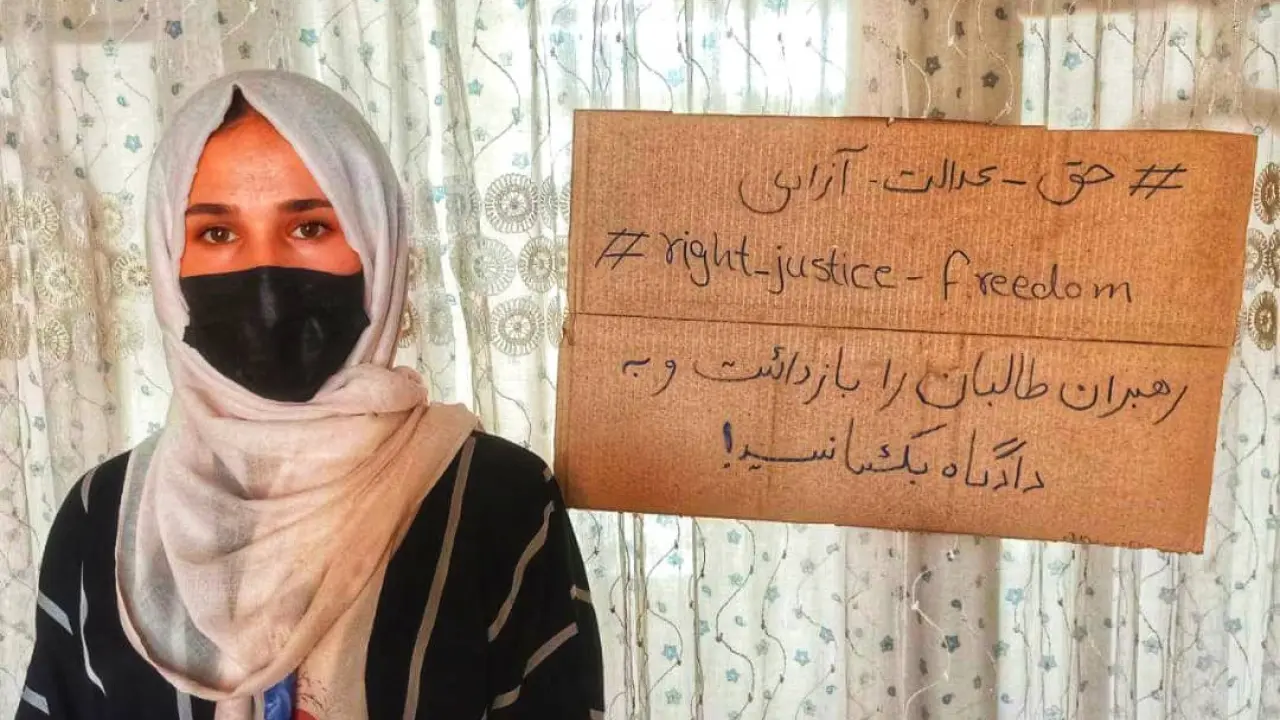 # حق - عدالت - آزادی
#right-justice-freedom
رهبران طالبان را بازداشت و به
دادگاه بکشانید!